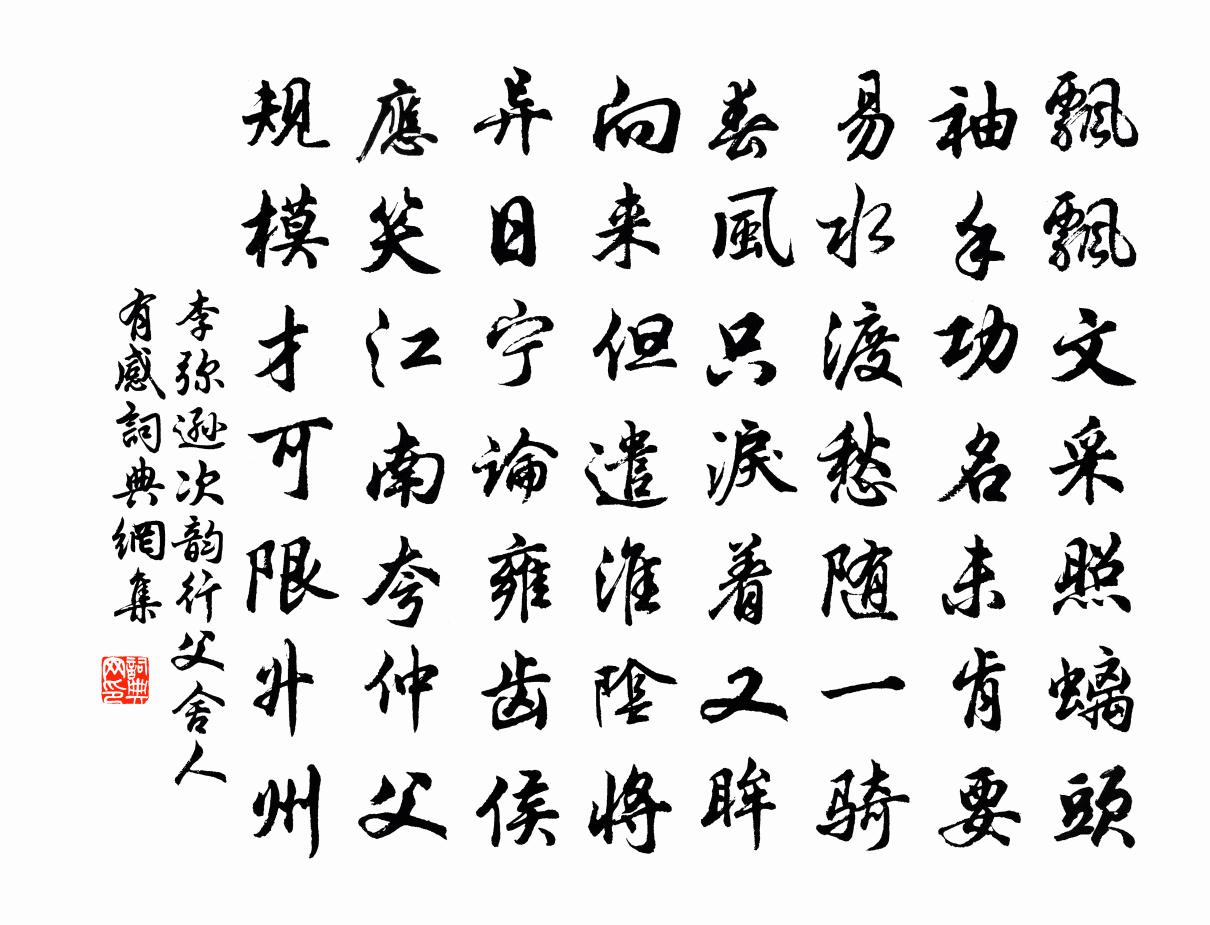 飄飄文采照螭頭
袖手功名未肯要
易水渡愁随一騎
春風只淚着又眸
向来但遣淮陰將
异日宁論雍齿侯
應笑江南夸仲父
規模才可限升州
李弥遜次韵行父舍人
有感詞典網集
詞典
网印